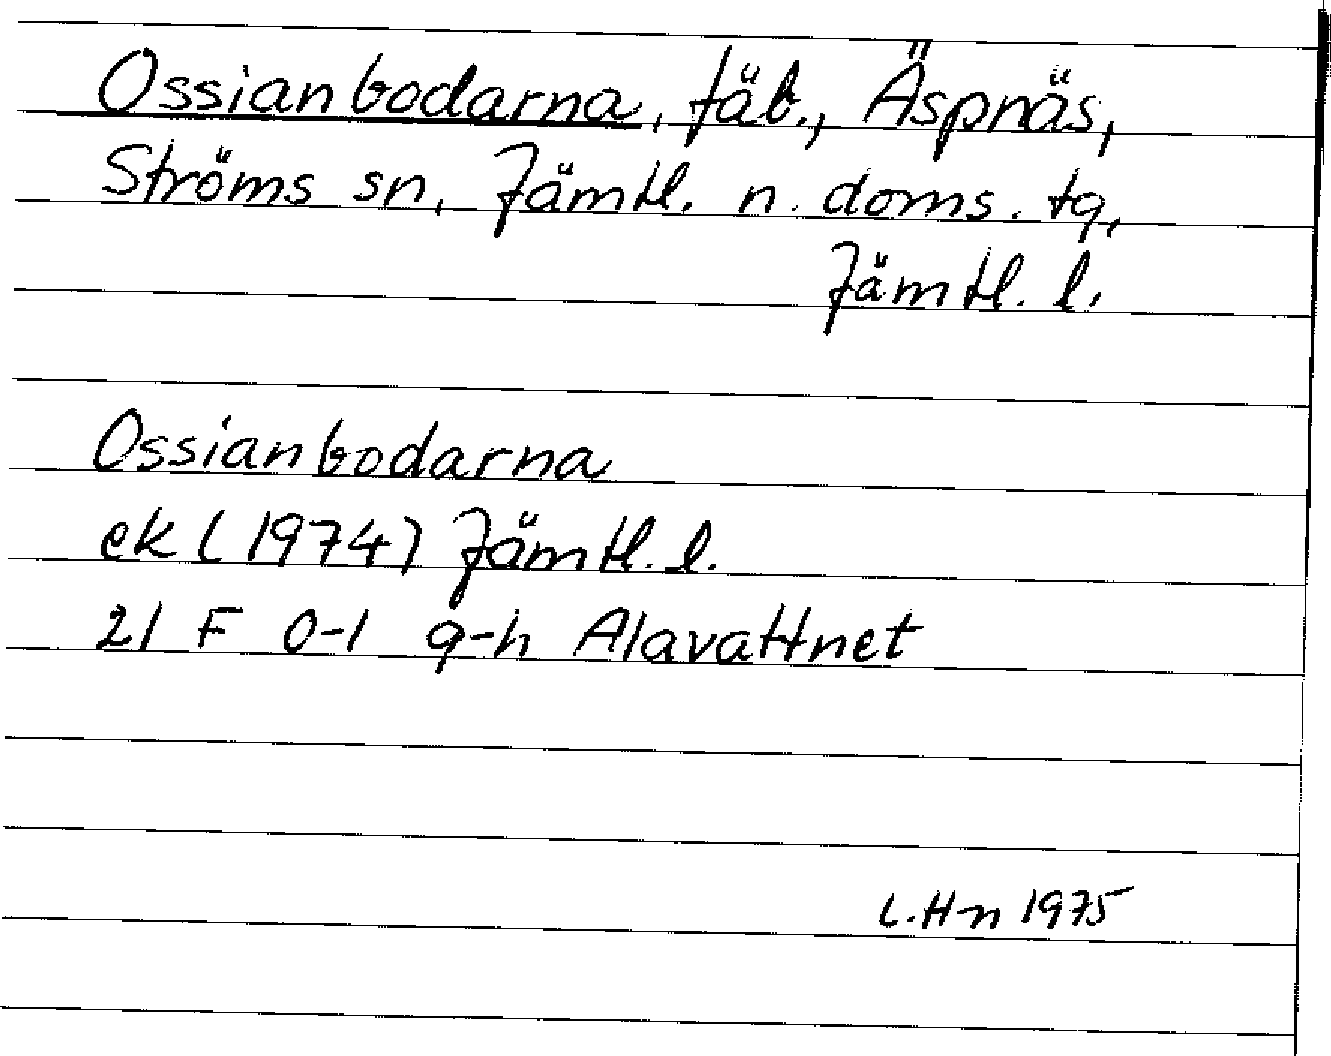 Ossianbodarna, fäb., Äspnäs,
Ströms sn, Jämtl. n. doms. tg,
Jämtl. l.
Ossianbodarna
ek (1974) Jämtl. l.
21 F 0-1 g-h Alavattnet
L. H-n 1975